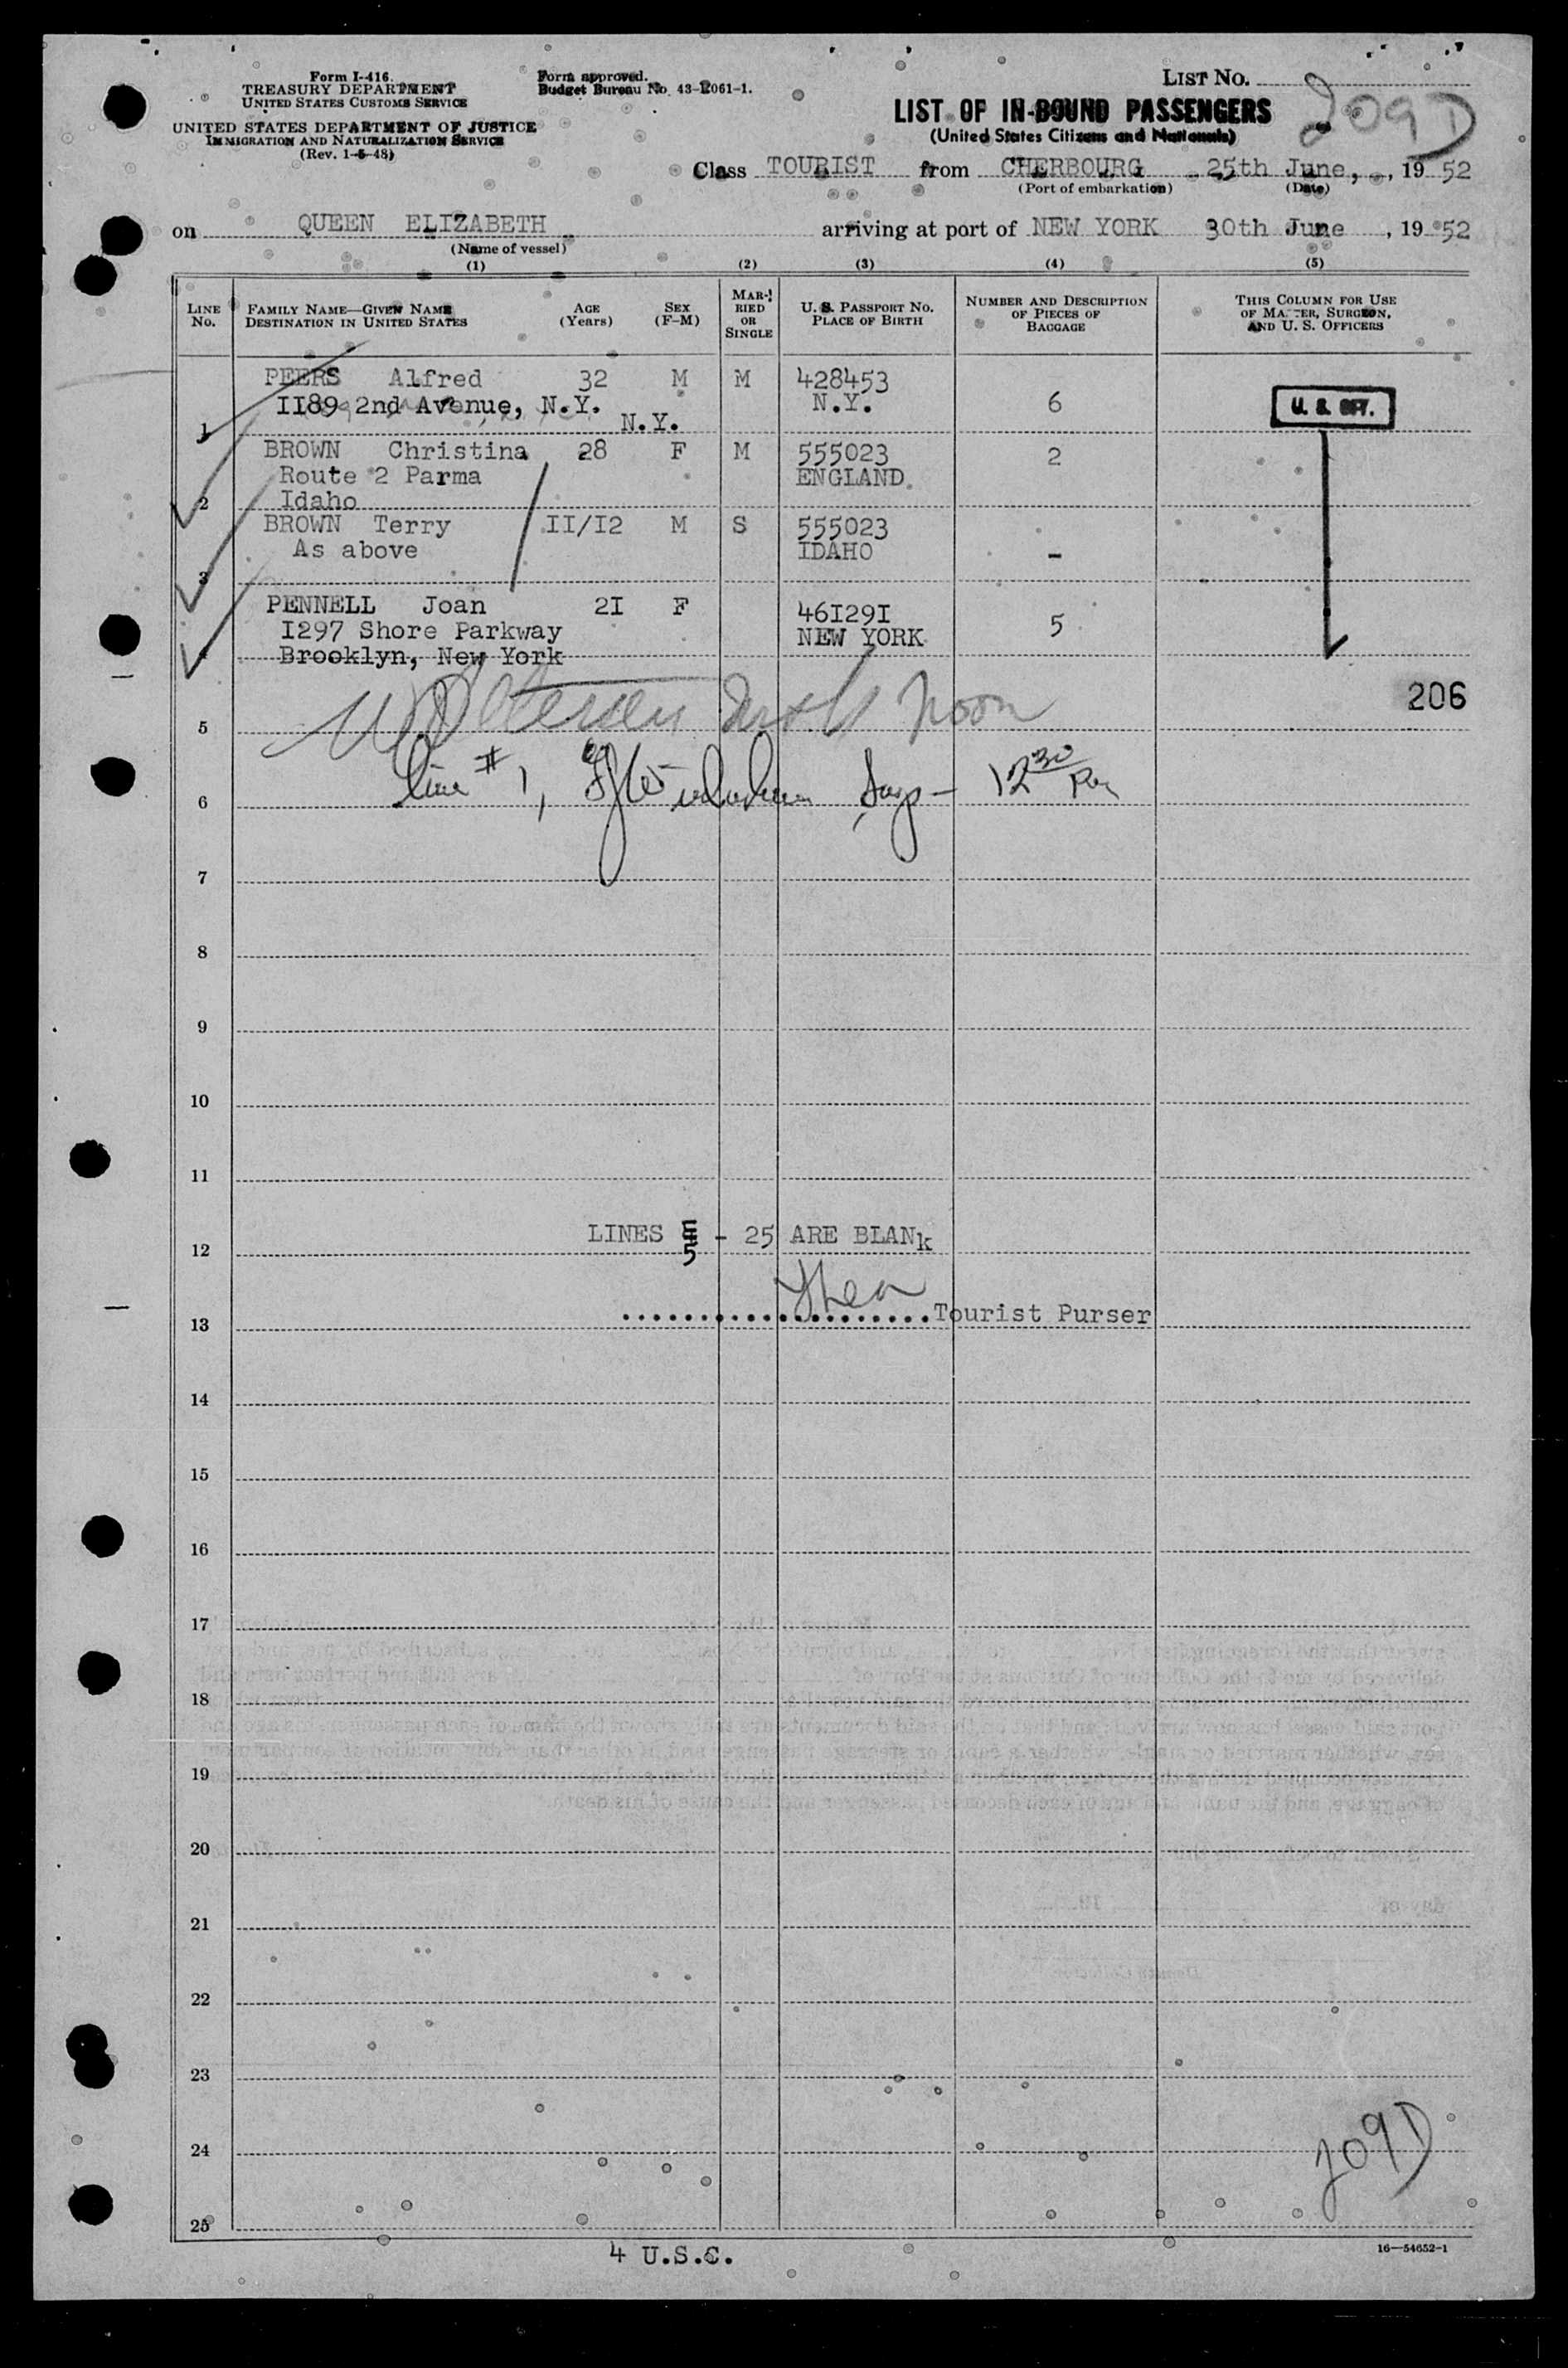 Form I-416.
TREASURY DEPARTMENT
UNITED STATES CUSTOMS SERVICE
UNITED STATES DEPARTMENT OF JUSTICE
IMMIGRATION AND NATURALIZATION SERVICE
(Rev. 1-5-48)
Form approved.
Budget Bureau No. 43-R061-1.
LIST NO.
209D
LIST OF IN-BOUND PASSENGERS
(United States Citizens and Nationals)
Class TOURIST from CHERBOURG 25th June, , 19 52
(Port of embarkation) (Date)
on QUEEN ELIZABETH arriving at port of NEW YORK 30th June , 19 52
(Name of vessel)
(1) (2) (3) (4) (5)
LINE No. FAMILY NAME—GIVEN NAME DESTINATION IN UNITED STATES AGE (Years) SEX (F-M) MARRIED OR SINGLE U. S. PASSPORT NO. PLACE OF BIRTH NUMBER AND DESCRIPTION OF PIECES OF BAGGAGE THIS COLUMN FOR USE OF MASTER, SURGEON, AND U. S. OFFICERS
PEERS Alfred 32 M M 428453
II89 2nd Avenue, N.Y. N.Y. 6
1 N.Y.
BROWN Christina 28 F M 555023 2
Route 2 Parma ENGLAND.
2 Idaho
BROWN Terry II/I2 M S 555023
As above IDAHO -
3
PENNELL Joan 2I F 46I29I
I297 Shore Parkway NEW YORK 5
4 Brooklyn, New York
206
5 noon
Line # 1, 12 30
6
7
8
9
10
11
LINES 5 - 25 ARE BLANk
12
Tourist Purser
13
14
15
16
17
18
19
20
21
22
23
24
209D
25
4 U.S.C.
16—54652-1